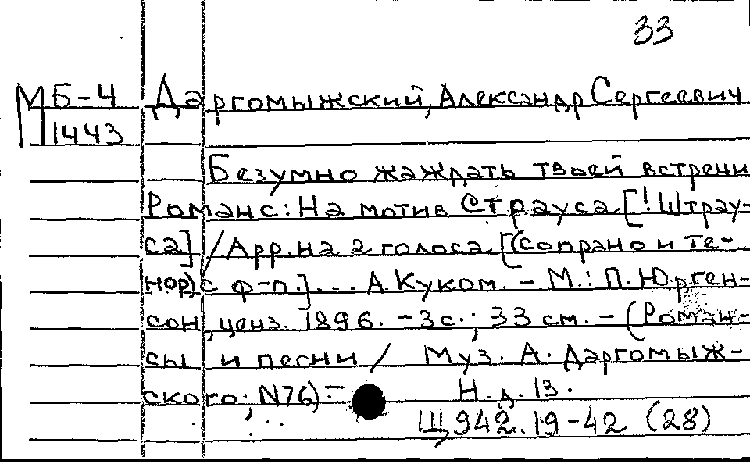 33
МБ-4 Даргомыжский, Александр Сергеевич
1443
Безумно жаждать твоей встречи
Романс: На мотив Страуса [! Штрау-
са] / Арр. на 2 голоса [(сопрано и те-
нор) с ф-п.]... А. Куком. - М.: П. Юрген-
сон, ценз. 1896. - 3с.; 33 см. - (Роман-
сы и песни / Муз. А. Даргомыж-
ского; N76) -
Н.д. 13.
Щ942.19-42 (28)